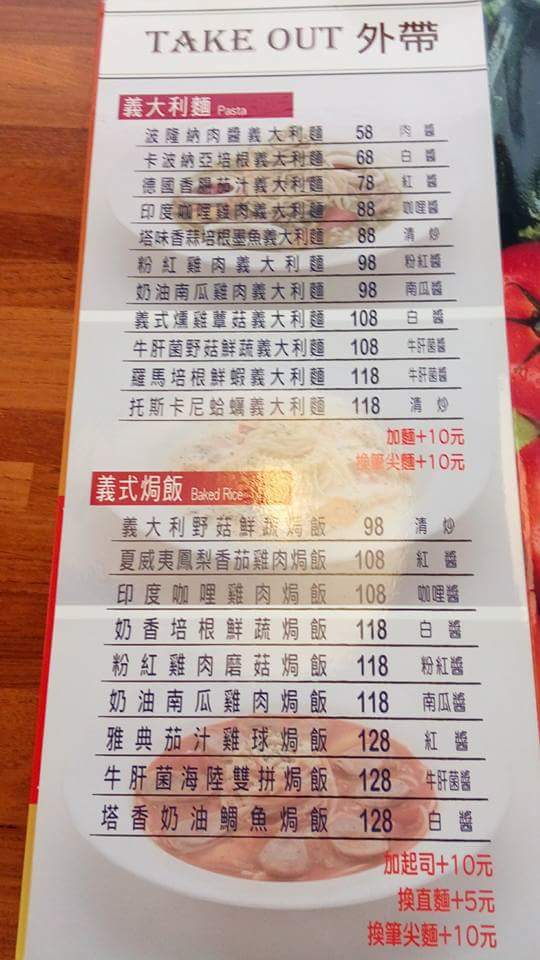 TAKE OUT 外帶
義大利麵 Pasta
波隆納肉醬義大利麵 58 肉醬
卡波納亞培根義大利麵 68 白醬
德國香腸茄汁義大利麵 78 紅醬
印度咖哩雞肉義大利麵 88 咖哩醬
塔味香蒜培根墨魚義大利麵 88 清炒
粉紅雞肉義大利麵 98 粉紅醬
奶油南瓜雞肉義大利麵 98 南瓜醬
義式燻雞蕈菇義大利麵 108 白醬
牛肝菌野菇鮮蔬義大利麵 108 牛肝菌醬
羅馬培根鮮蝦義大利麵 118 牛肝菌醬
托斯卡尼蛤蠣義大利麵 118 清炒
加麵+10元
換筆尖麵+10元
義式焗飯 Baked Rice
義大利野菇鮮蔬焗飯 98 清炒
夏威夷鳳梨香茄雞肉焗飯 108 紅醬
印度咖哩雞肉焗飯 108 咖哩醬
奶香培根鮮蔬焗飯 118 白醬
粉紅雞肉磨菇焗飯 118 粉紅醬
奶油南瓜雞肉焗飯 118 南瓜醬
雅典茄汁雞球焗飯 128 紅醬
牛肝菌海陸雙拼焗飯 128 牛肝菌醬
塔香奶油鯛魚焗飯 128 白醬
加起司+10元
換直麵+5元
換筆尖麵+10元